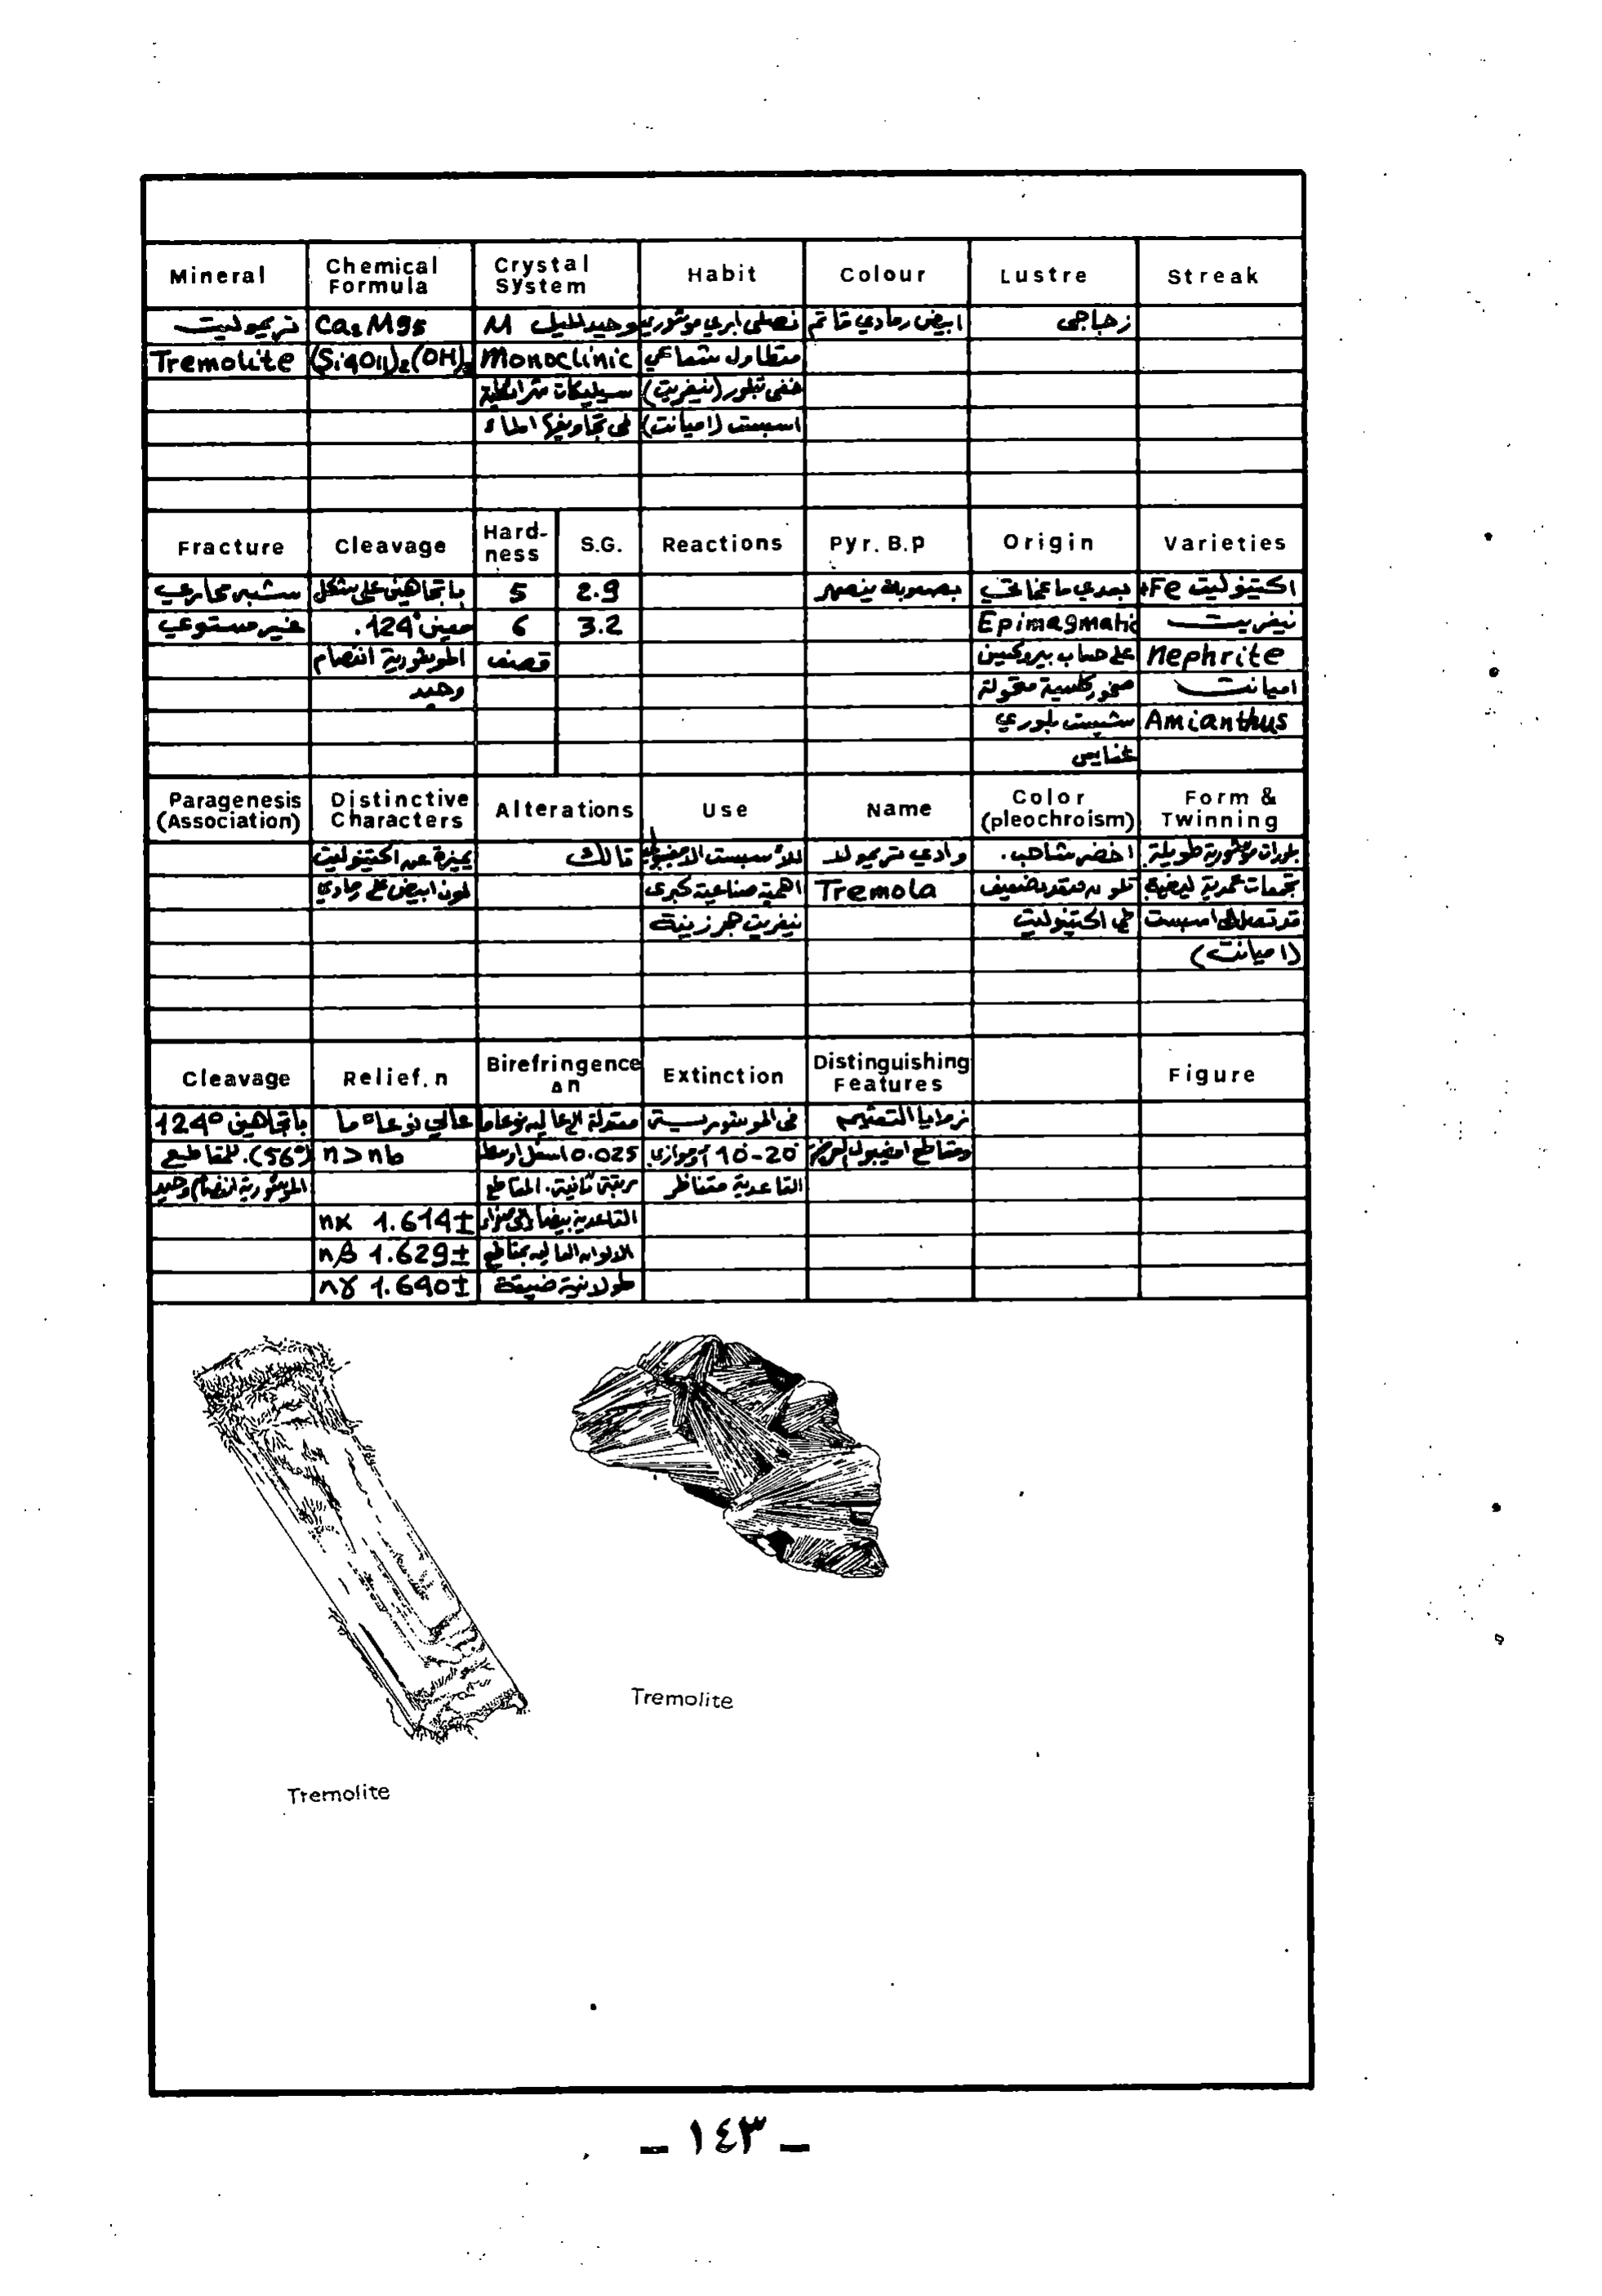 Mineral | Chemical Formula | Crystal System | Habit | Colour | Lustre | Streak
تريموليت | Ca2 Mg5 | وحيد الميل M | نصلي ابري موشوري | ابيض رمادي قاتم | زجاجي
Tremolite | (Si4O11)2(OH)2 | Monoclinic | متطاول شعاعي
سيليكات | خفي تبلور (نيفريت)
في | اسبست (اميانت)
Fracture | Cleavage | Hardness | S.G. | Reactions | Pyr. B.p | Origin | Varieties
شبه محاري | باتجاهين على شكل | 5 | 2.9 | بصعوبة ينصهر | بعدي ماغماتي | اكتينوليت Fe+
غير مستوي | معين 124°. | 6 | 3.2 | Epimagmatic | نيفريت
الموشورية انفصام | قصف | على حساب بيروكسين | Nephrite
وحيد | صخور كلسية متحولة | اميانت
شيست بلوري | Amianthus
غنايس
Paragenesis (Association) | Distinctive Characters | Alterations | Use | Name | Color (pleochroism) | Form & Twinning
يميزة عن اكتينوليت | تالك | للأسبست الامفيبولي | وادي تريمولا | اخضر شاحب. | بلورات موشورية طويلة
لون ابيض رمادي | اهمية صناعية كبرى | Tremola | ضعيف | تجمعات ليفية
نيفريت حجر زينة | في اكتينوليت | قد تصل الى اسبست
(اميانت)
Cleavage | Relief. n | Birefringence Δn | Extinction | Distinguishing Features | Figure
باتجاهين 124° | عالي نوعاً ما | معتدلة الى عالية نوعاً ما | في الموشورية
(56°). للمقاطع | n > nb | 0.025 | 10-20° | ومقاطع امفيبول
الموشورية انفصام وحيد | رتبة ثانية. المقاطع | القاعدية متناظر
nα 1.614± | القاعدية بيضاء الى صفراء
nβ 1.629± | الالوان العالية بمقاطع
nγ 1.640± | طولانية ضيقة
Tremolite
Tremolite
– ١٤٣ –